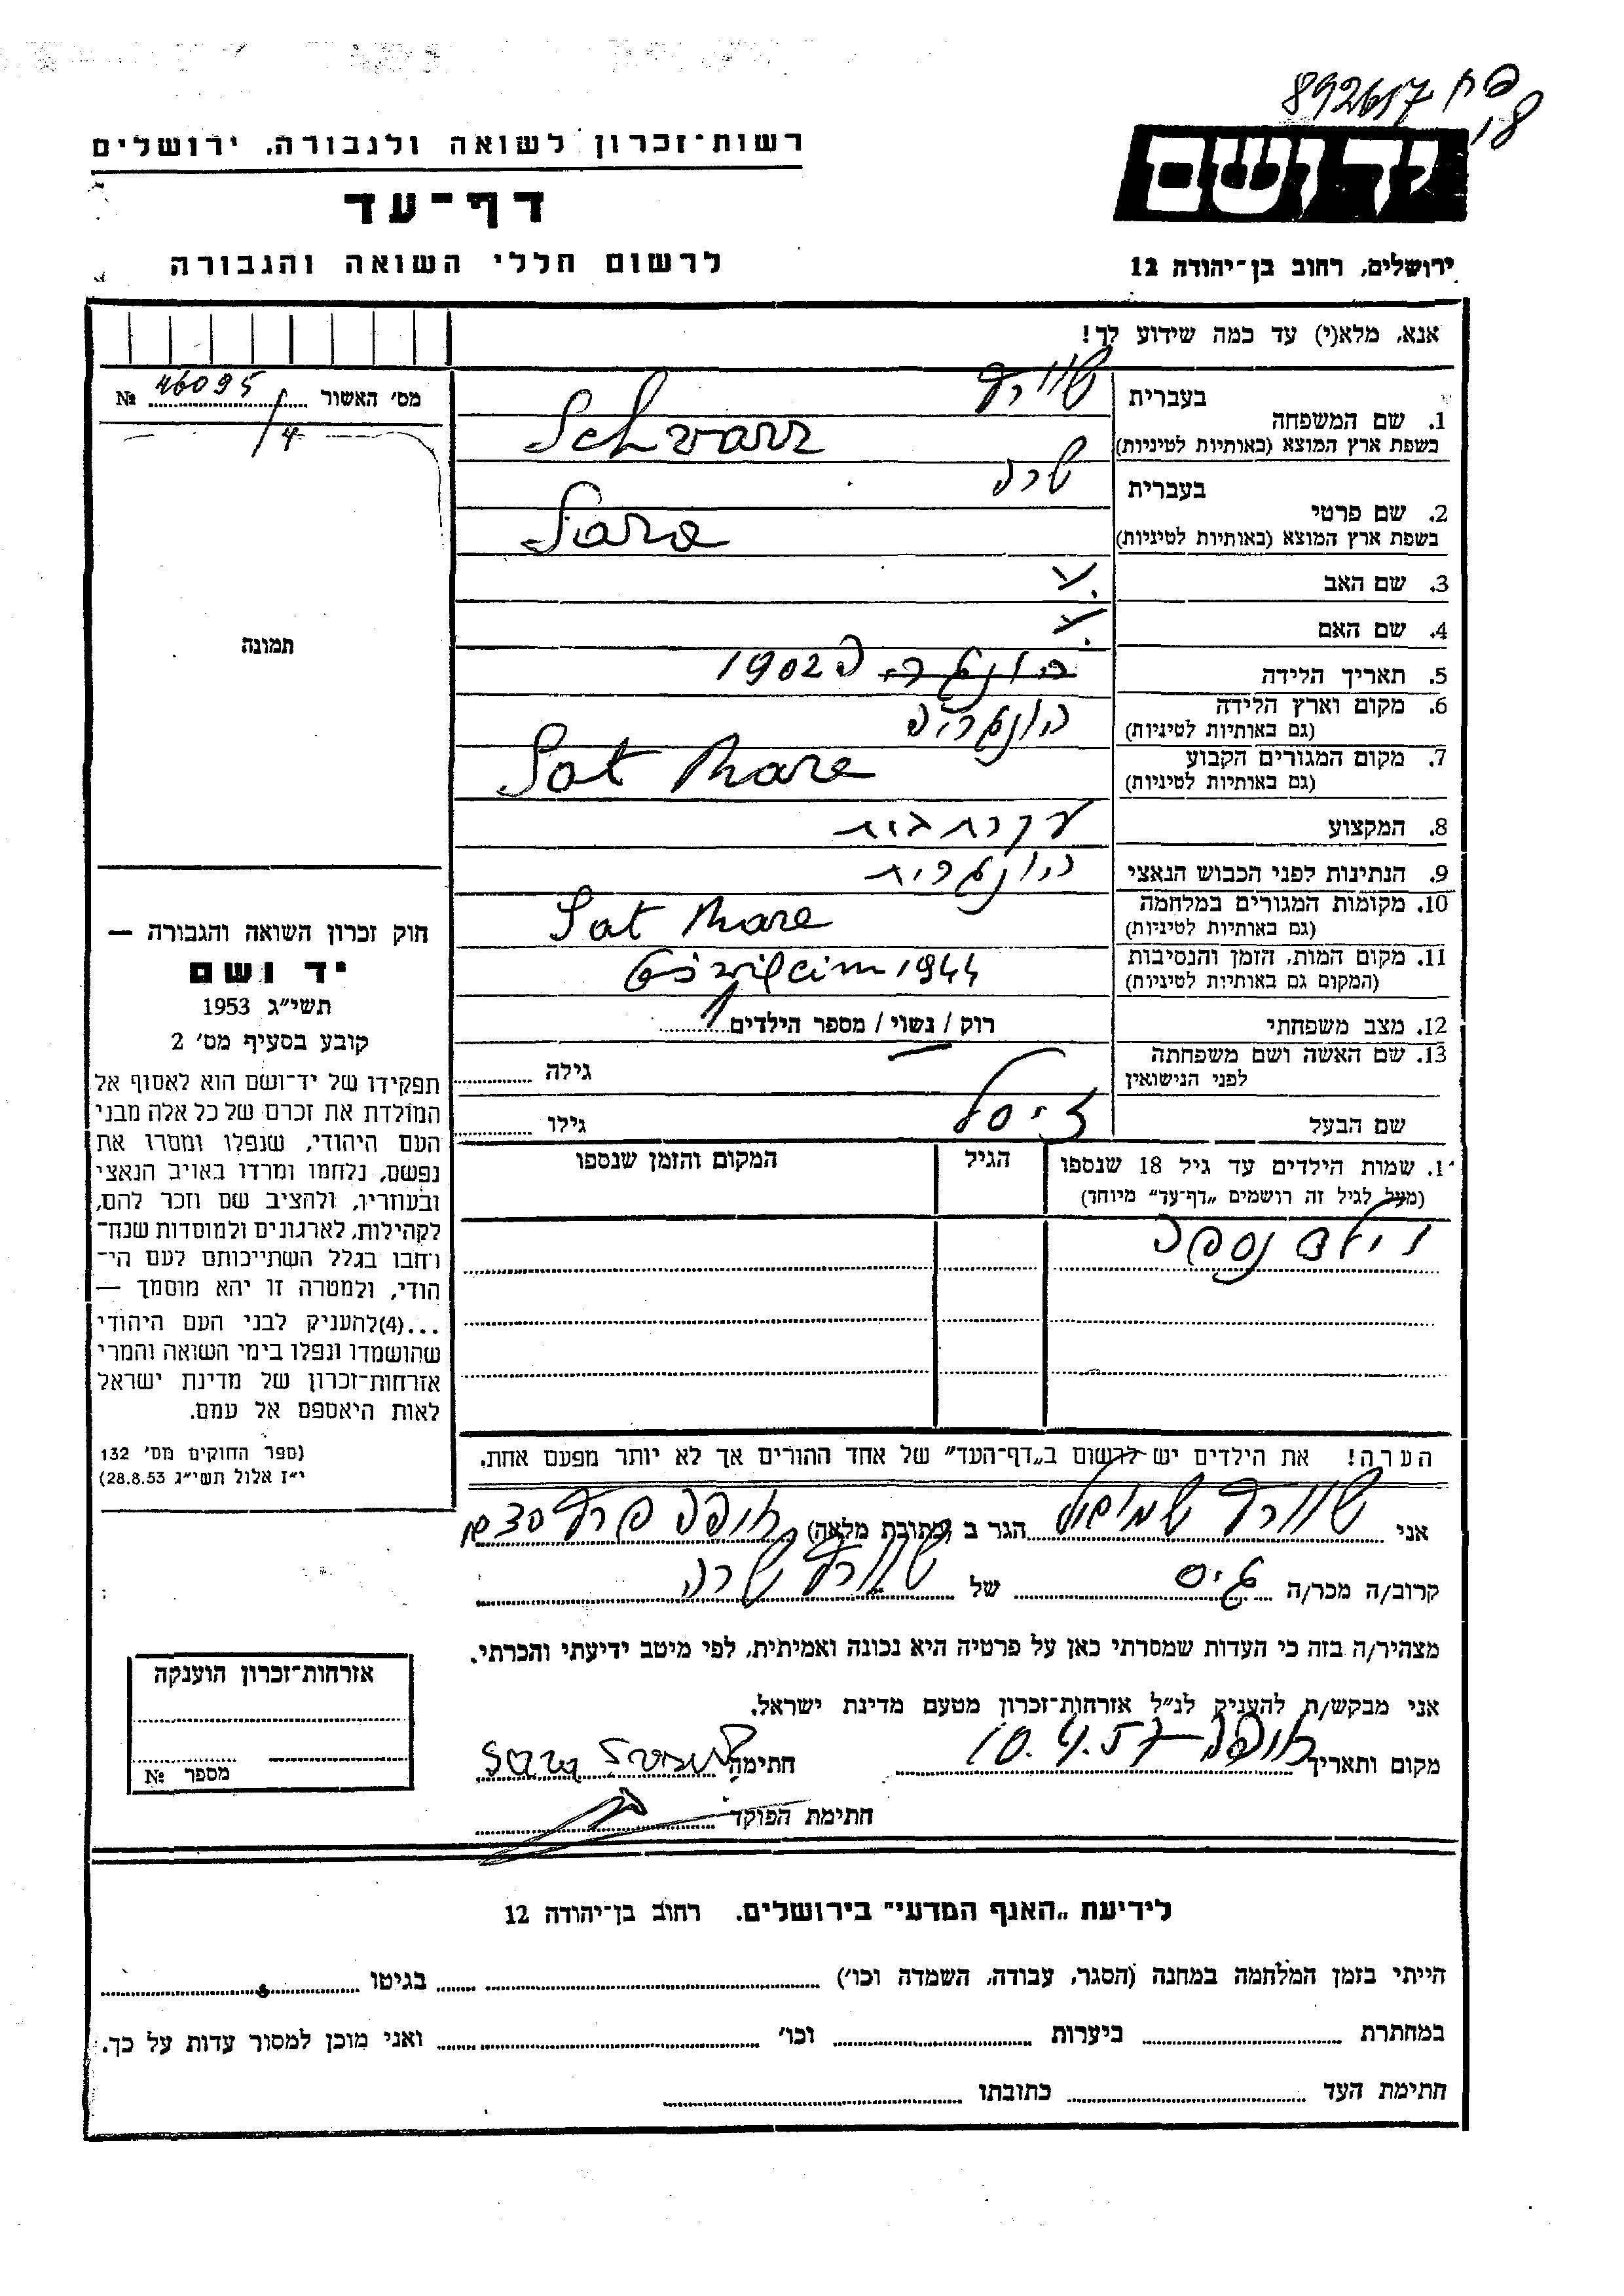 892617 פח
18
רשות־זכרון לשואה ולגבורה, ירושלים
דף־עד
לרשום חללי השואה והגבורה
יד ושם
ירושלים, רחוב בן־יהודה 12
אנא, מלא(י) עד כמה שידוע לך!
מס׳ האשור 46095 №
/4
בעברית שוורץ
1. שם המשפחה
בשפת ארץ המוצא (באותיות לטיניות) Schvarz
בעברית שרה
2. שם פרטי
בשפת ארץ המוצא (באותיות לטיניות) Sara
3. שם האב
4. שם האם
5. תאריך הלידה 1902
6. מקום וארץ הלידה הונגריה
(גם באותיות לטיניות)
7. מקום המגורים הקבוע Sat Mare
(גם באותיות לטיניות)
8. המקצוע עקרת בית
9. הנתינות לפני הכבוש הנאצי הונגרית
10. מקומות המגורים במלחמה Sat Mare
(גם באותיות לטיניות)
11. מקום המות, הזמן והנסיבות 1944
(המקום גם באותיות לטיניות)
12. מצב משפחתי רוק / נשוי / מספר הילדים 1
13. שם האשה ושם משפחתה
לפני הנישואין גילה
שם הבעל זיסל גילו
1. שמות הילדים עד גיל 18 שנספו הגיל המקום והזמן שנספו
(מעל לגיל זה רושמים „דף־עד״ מיוחד)
וילד נספה
הערה! את הילדים יש לרשום ב„דף־העד״ של אחד ההורים אך לא יותר מפעם אחת.
תמונה
חוק זכרון השואה והגבורה —
יד ושם
תשי״ג 1953
קובע בסעיף מס׳ 2
תפקידו של יד־ושם הוא לאסוף אל
המולדת את זכרם של כל אלה מבני
העם היהודי, שנפלו ומסרו את
נפשם, נלחמו ומרדו באויב הנאצי
ובעוזריו, ולהציב שם וזכר להם,
לקהילות, לארגונים ולמוסדות שנח־
רחבו בגלל השתייכותם לעם הי־
הודי, ולמטרה זו יהא מוסמך —
...(4) להעניק לבני העם היהודי
שהושמדו ונפלו בימי השואה והמרי
אזרחות־זכרון של מדינת ישראל
לאות היאספם אל עמם.
(ספר החוקים מס׳ 132
י״ז אלול תשי״ג 28.8.53)
אני שוורץ שמואל הגר ב (כתובת מלאה) חיפה
קרוב/ה מכר/ה גיס של שוורץ שרה
מצהיר/ה בזה כי העדות שמסרתי כאן על פרטיה היא נכונה ואמיתית, לפי מיטב ידיעתי והכרתי.
אני מבקש/ת להעניק לנ״ל אזרחות־זכרון מטעם מדינת ישראל.
מקום ותאריך חיפה 10.4.57 חתימה
חתימת הפוקד
אזרחות־זכרון הוענקה
מספר №
לידיעת „האגף המדעי״ בירושלים. רחוב בן־יהודה 12
הייתי בזמן המלחמה במחנה (הסגר, עבודה, השמדה וכו׳) בגיטו
במחתרת ביערות וכו׳ ואני מוכן למסור עדות על כך.
חתימת העד כתובתו